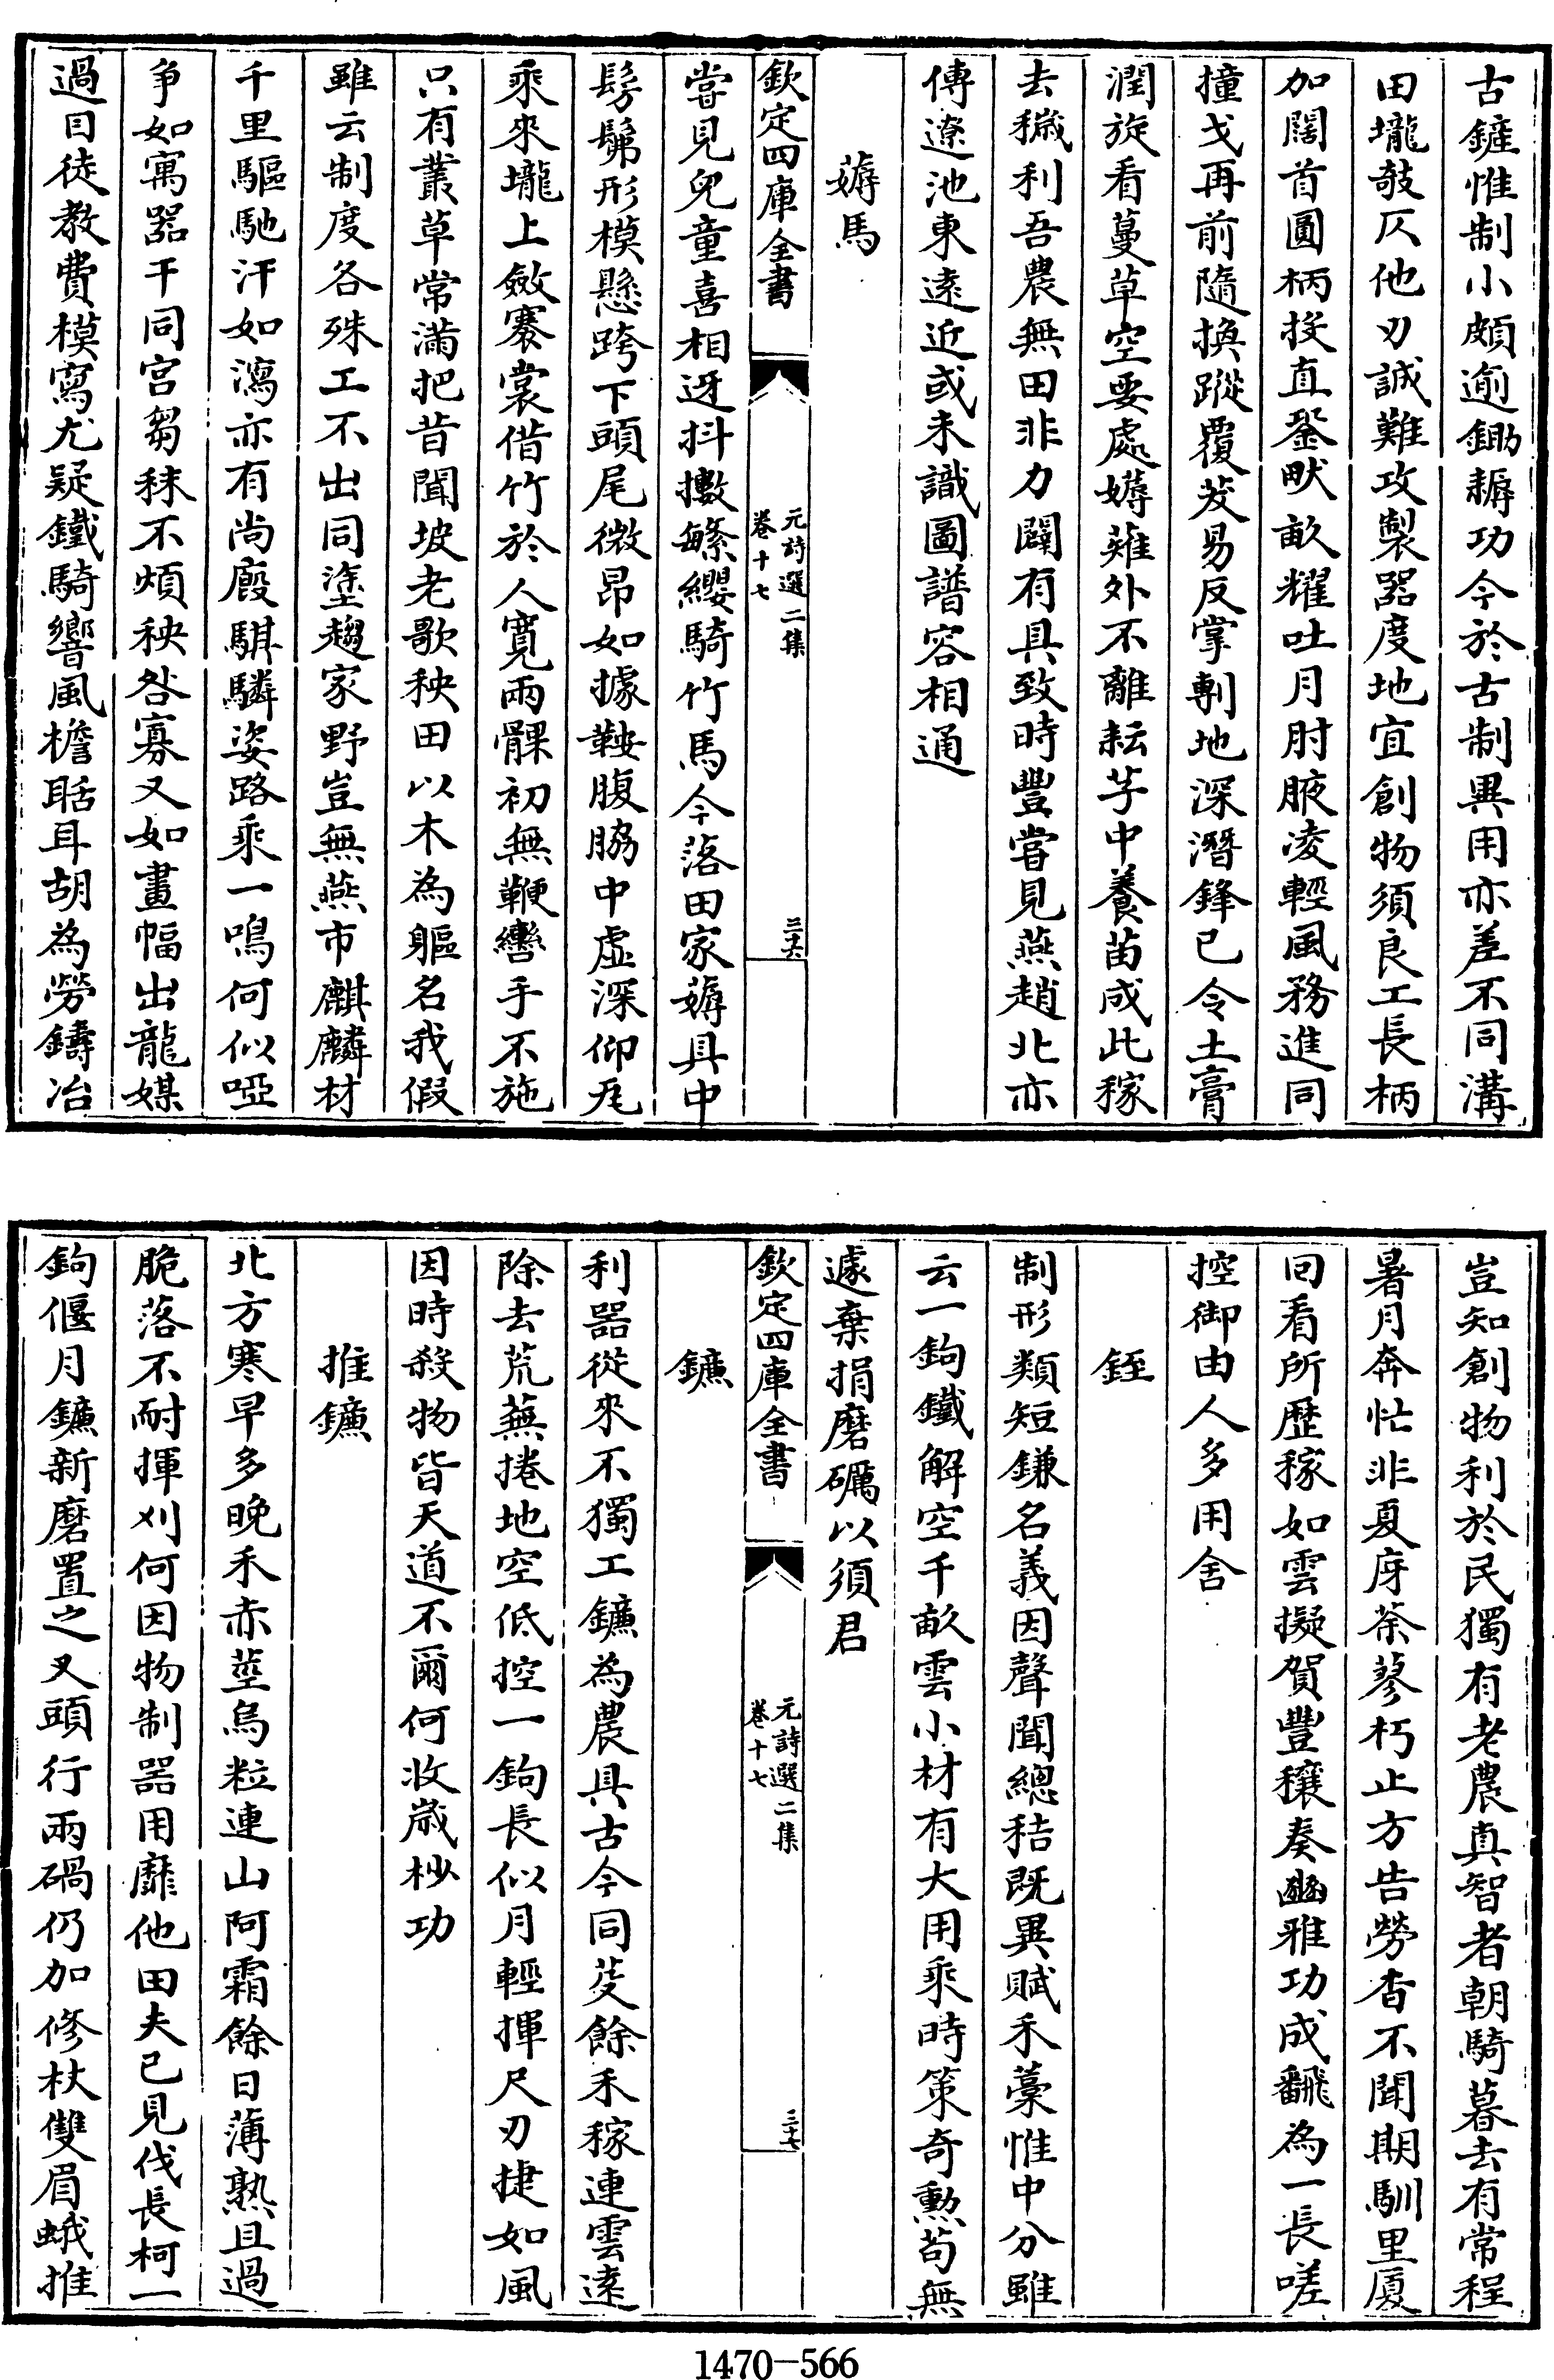 古鏟惟制小頗逾鋤耨功今於古制異用亦差不同溝
田壠敧仄他刃誠難攻製器度地宜創物須良工長柄
加闊首圓柄挍直銎畎畝耀吐月肘腋凌輕風務進同
撞戈再前隨換蹤覆茇易反掌剸地深潛鋒已令土膏
潤旋看蔓草空要處媷薙外不離耘芓中養苗成此稼
去穢利吾農無田非力闢有具致時豐嘗見燕趙北亦
傳遼池東遠近或未識圖譜容相通
薅馬
欽定四庫全書
元詩選二集
卷十七
三十六
嘗見兒童喜相迓抖擻繁纓騎竹馬今落田家薅具中
髣髴形模懸跨下頭尾微昂如據鞍腹脇中虛深仰瓦
乘來壠上斂褰裳借竹於人寬兩髁初無鞭轡手不施
只有叢草常滿把昔聞坡老歌秧田以木為軀名我假
雖云制度各殊工不出同塗趨家野豈無燕市麒麟材
千里驅馳汗如瀉亦有尚廄騏驎姿路乘一鳴何似啞
争如寓器干同宫芻秣不煩秧咎寡又如畫幅出龍媒
過目徒教費模寫尤疑鐵騎響風檐聒耳胡為勞鑄冶
豈知創物利於民獨有老農真智者朝騎暮去有常程
暑月奔忙非夏庌荼蓼朽止方告勞杳不聞期馴里廈
回看所歴稼如雲擬賀豐穰奏豳雅功成飜為一長嗟
控御由人多用舍
銍
制形類短鎌名義因聲聞總秸既異賦禾藁惟中分雖
云一鉤鐵解空千畝雲小材有大用乘時策奇勲苟無
遽棄捐磨礪以須君
欽定四庫全書
元詩選二集
卷十七
三十七
鐮
利器從來不獨工鐮為農具古今同芟餘禾稼連雲遠
除去荒蕪捲地空低控一鉤長似月輕揮尺刃捷如風
因時殺物皆天道不爾何收嵗杪功
推鐮
北方寒早多晚禾赤莖烏粒連山阿霜餘日薄熟且過
脆落不耐揮刈何因物制器用靡他田夫已見伐長柯一
鉤偃月鐮新磨置之叉頭行兩碢仍加修杖雙眉蛾推
1470-566